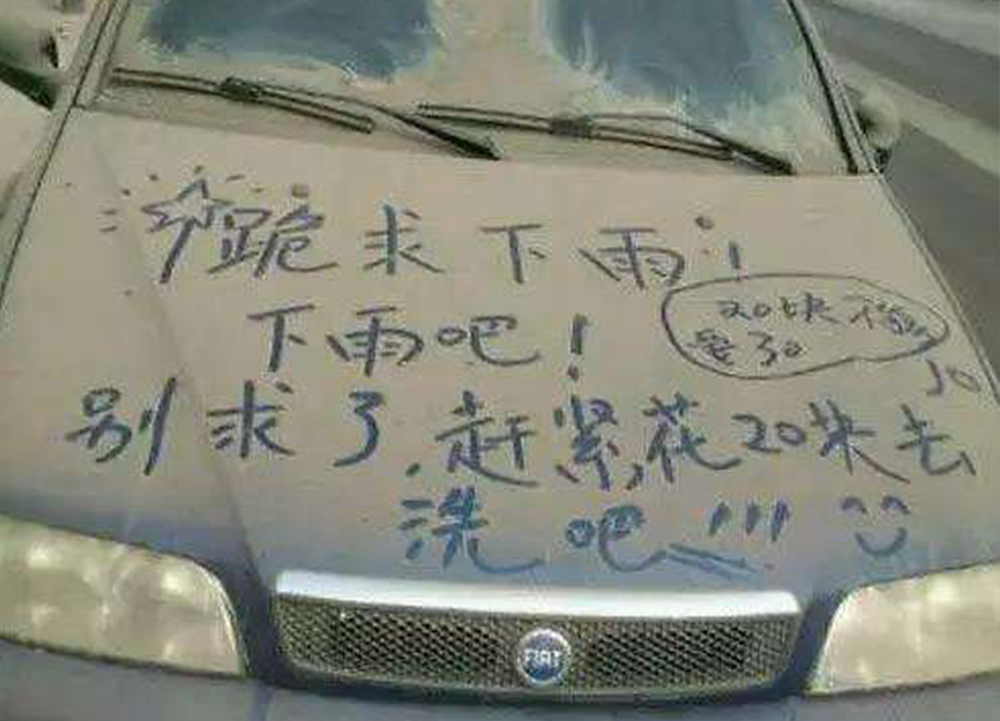 跪求下雨!
下雨吧!
20块不够
要30
别求了.赶紧花20块去
洗吧!!!
FIAT